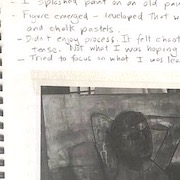 I splashed paint on an old pai
- Figure emerged - developed that w
and chalk pastels.
- Didn't enjoy process. It felt chaot
tense. Not what I was hoping
- Tried to focus on what I was lea